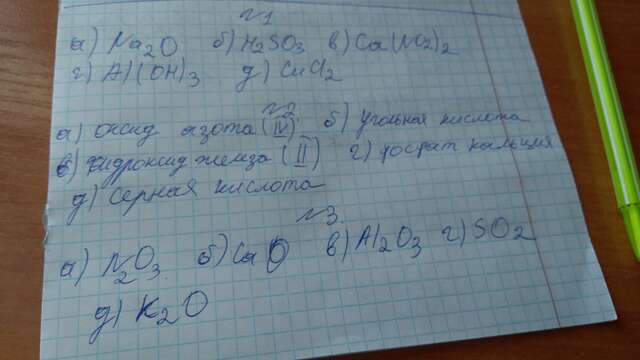 №1
а) Na2O б) H2SO3 в) Ca(NO2)2
г) Al(OH)3 д) CuCl2
№2
а) оксид азота (IV) б) угольная кислота
в) гидроксид железа (II) г) фосфат кальция
д) серная кислота
№3
а) N2O3 б) CaO в) Al2O3 г) SO2
д) K2O